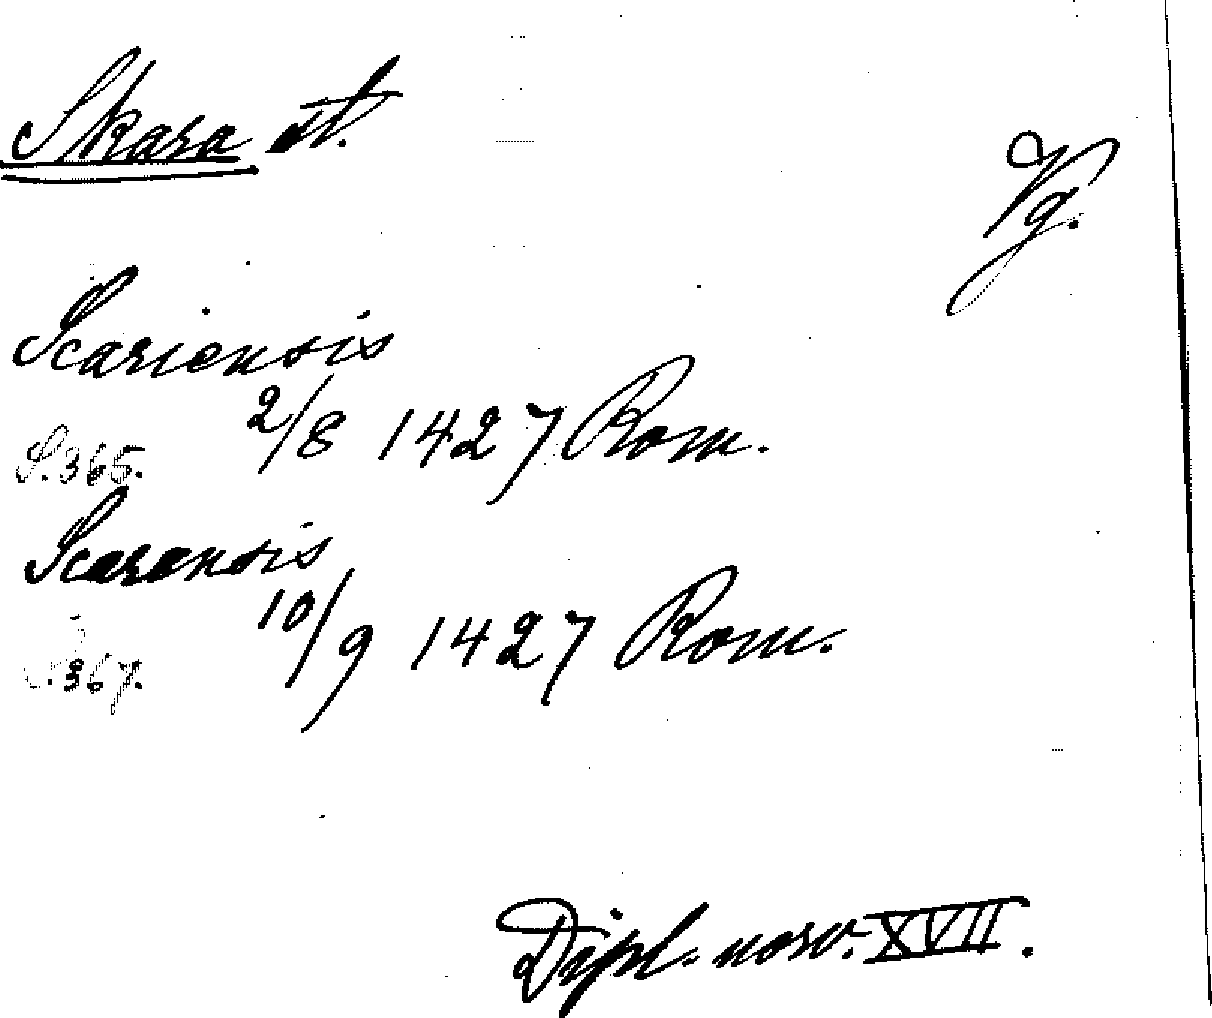 Skara st.
Vg.
Scariensis
2/8 1427 Rom.
S. 365.
Scarensis
10/9 1427 Rom.
S. 367.
Dipl. norv. XVII.